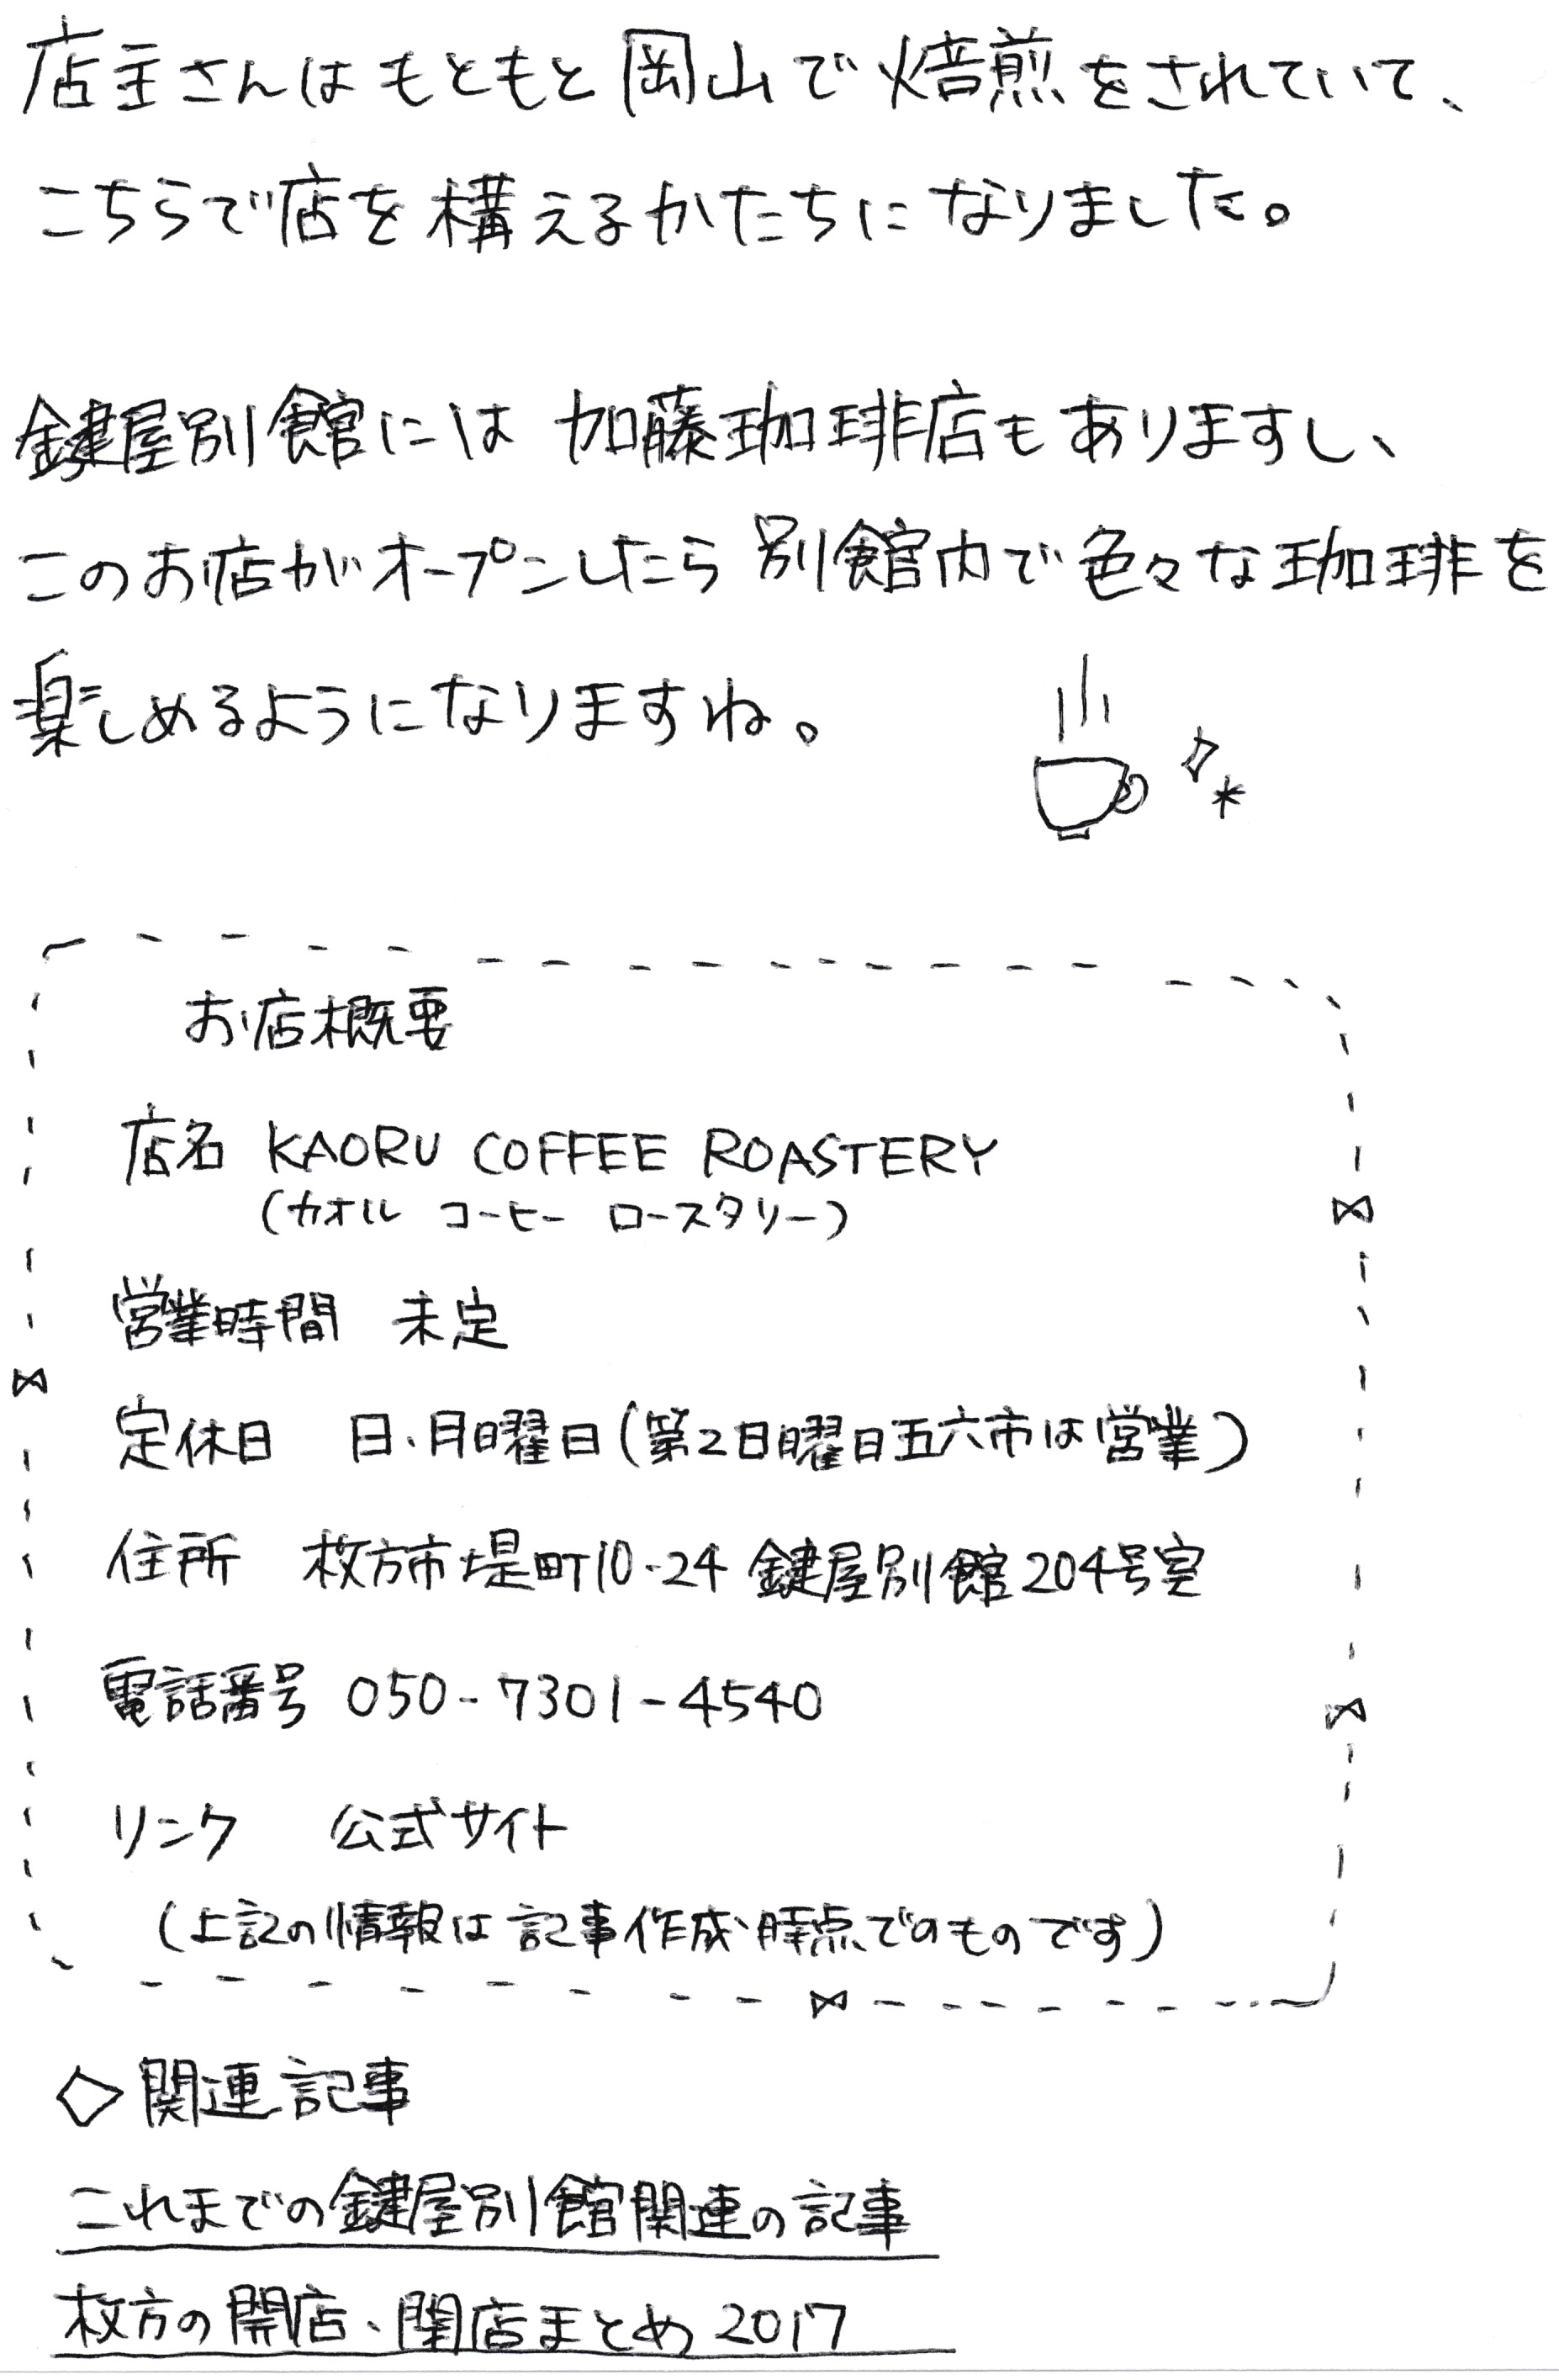 店主さんはもともと岡山で焙煎をされていて、
こちらで店を構えるかたちになりました。
鍵屋別館には加藤珈琲店もありますし、
このお店がオープンしたら別館内で色々な珈琲を
楽しめるようになりますね。
お店概要
店名 KAORU COFFEE ROASTERY
(カオル コーヒー ロースタリー)
営業時間 未定
定休日 日・月曜日(第2日曜日五六市は営業)
住所 枚方市堤町10-24 鍵屋別館204号室
電話番号 050-7301-4540
リンク 公式サイト
(上記の情報は記事作成時点でのものです)
◇関連記事
これまでの鍵屋別館関連の記事
枚方の開店、閉店まとめ2017